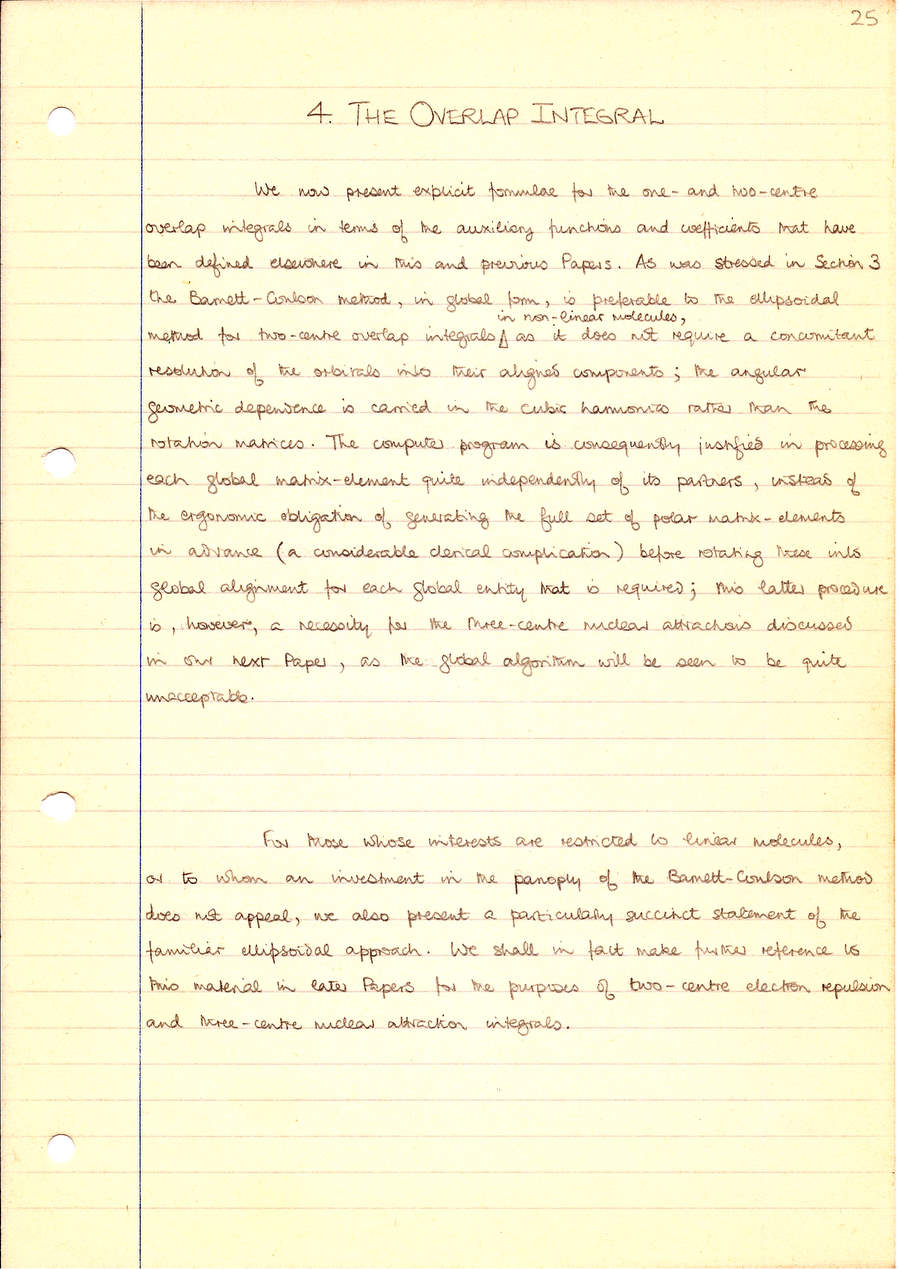 25
4. THE OVERLAP INTEGRAL
We now present explicit formulae for the one- and two-centre
overlap integrals in terms of the auxiliary functions and coefficients that have
been defined elsewhere in this and previous Papers. As was stressed in Section 3
the Barnett-Coulson method, in global form, is preferable to the ellipsoidal
in non-linear molecules,
method for two-centre overlap integrals as it does not require a concomitant
resolution of the orbitals into their aligned components; the angular
geometric dependence is carried in the cubic harmonics rather than the
rotation matrices. The computer program is consequently justified in processing
each global matrix-element quite independently of its partners, instead of
the ergonomic obligation of generating the full set of polar matrix-elements
in advance (a considerable clerical complication) before rotating these into
global alignment for each global entity that is required; this latter procedure
is, however, a necessity for the three-centre nuclear attractions discussed
in our next Paper, as the global algorithm will be seen to be quite
unacceptable.
For those whose interests are restricted to linear molecules,
or to whom an investment in the panoply of the Barnett-Coulson method
does not appeal, we also present a particularly succinct statement of the
familiar ellipsoidal approach. We shall in fact make further reference to
this material in later Papers for the purposes of two-centre electron repulsion
and three-centre nuclear attraction integrals.